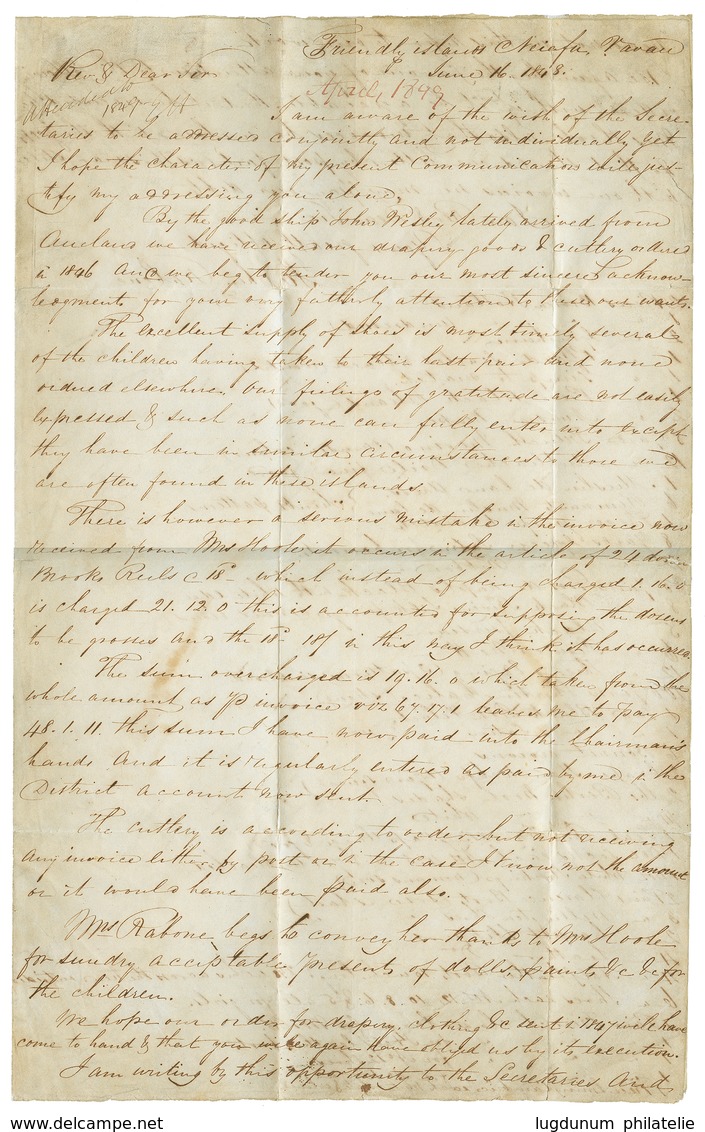 Friendly islands Neiafu, Vavau
June 16. 1848.
Rev.d & Dear Sir
April, 1849
Attended to
1849
I am aware of the wish of the Secre-
taries to be addressed conjointly and not individually yet
I hope the character of my present Communication will jus-
tify my addressing you alone,
By the good ship John Wesley lately arrived from
Aucland we have received our drapery goods & cutlery ordered
in 1846 And we beg to tender you our most sincere acknow-
ledgments for your very fatherly attention to these our wants.
The excellent supply of shoes is most timely several
of the children having taken to their last pair and none
ordered elsewhere. Our feelings of gratitude are not easily
expressed & such as none can fully enter into except
they have been in similar circumstances to those we
are often found in these islands.
There is however a serious mistake in the invoice now
received from Mrs Hoole it occurs in the article of 24 dozen
Brooks Reels c 18d which instead of being charged 1. 16. 0
is charged 21. 12. 0 this is accounted for supposing the dozens
to be grosses and the 18d 18/ in this way I think it has occurred.
The sum overcharged is 19. 16. 0 which taken from the
whole amount as p invoice viz 67. 17. 1 leaves me to pay
48. 1. 11. this sum I have now paid into the Chairman's
hands And it is regularly entered as paid by me in the
District account now sent.
The cutlery is according to order but not receiving
any invoice either by post or in the case I know not the amount
or it would have been paid also.
Mrs Rabone begs to convey her thanks to Mrs Hoole
for sundry acceptable presents of dolls, paints &c &c for
the children.
We hope our order for drapery, clothing &c sent in 1847 will have
come to hand & that you will again have obliged us by its execution.
I am writing by this opportunity to the Secretaries And
lugdunum philatelie